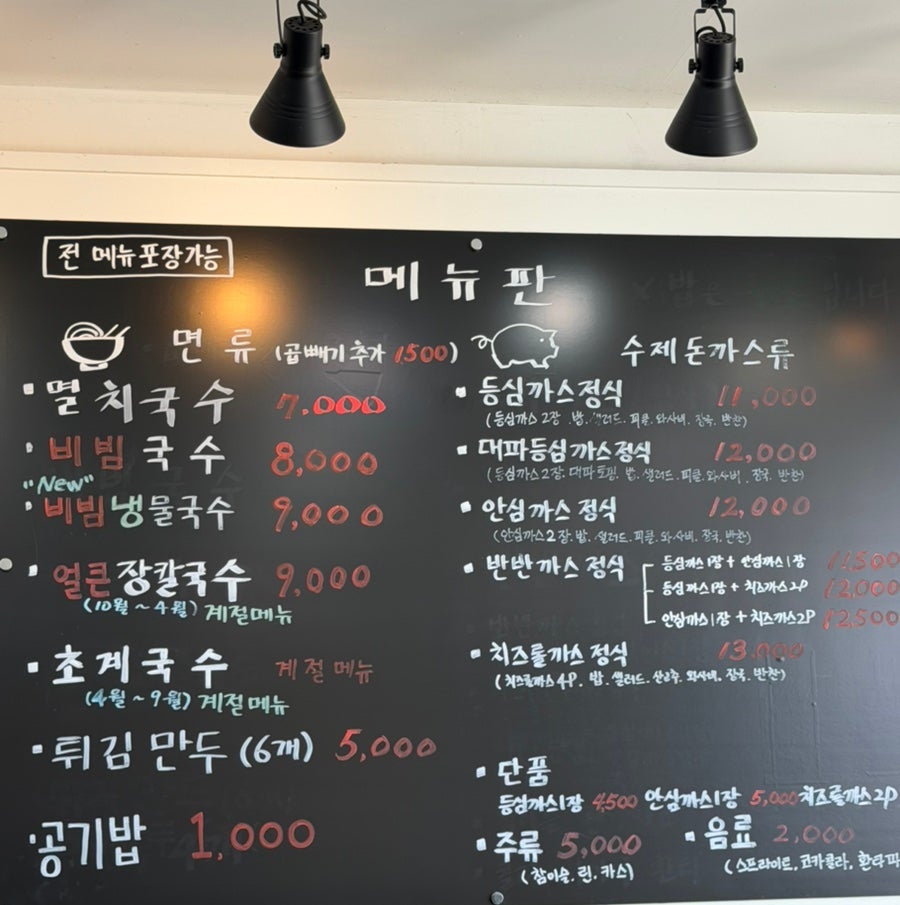 전 메뉴포장가능
메뉴판
면류 (곱빼기 추가 1500)
멸치국수 7,000
비빔국수 8,000
"New"
비빔냉물국수 9,000
얼큰장칼국수 9,000
(10월 ~ 4월) 계절메뉴
초계국수 계절메뉴
(4월 ~ 9월) 계절메뉴
튀김만두 (6개) 5,000
공기밥 1,000
수제돈까스류
등심까스정식 11,000
(등심까스 2장. 밥. 샐러드. 피클. 와사비. 장국. 반찬)
대파등심까스정식 12,000
(등심까스 2장. 대파토핑. 밥. 샐러드. 피클. 와사비. 장국. 반찬)
안심까스정식 12,000
(안심까스 2장. 밥. 샐러드. 피클. 와사비. 장국. 반찬)
반반까스정식
등심까스1장 + 안심까스1장 11,500
등심까스1장 + 치즈까스2P 12,000
안심까스1장 + 치즈까스2P 12,500
치즈롤까스정식 13,000
(치즈롤까스 4P. 밥. 샐러드. 와사비. 장국. 반찬)
단품
등심까스1장 4,500 안심까스1장 5,000 치즈롤까스2P
주류 5,000
(참이슬. 린. 카스)
음료 2,000
(스프라이트, 코카콜라, 환타파